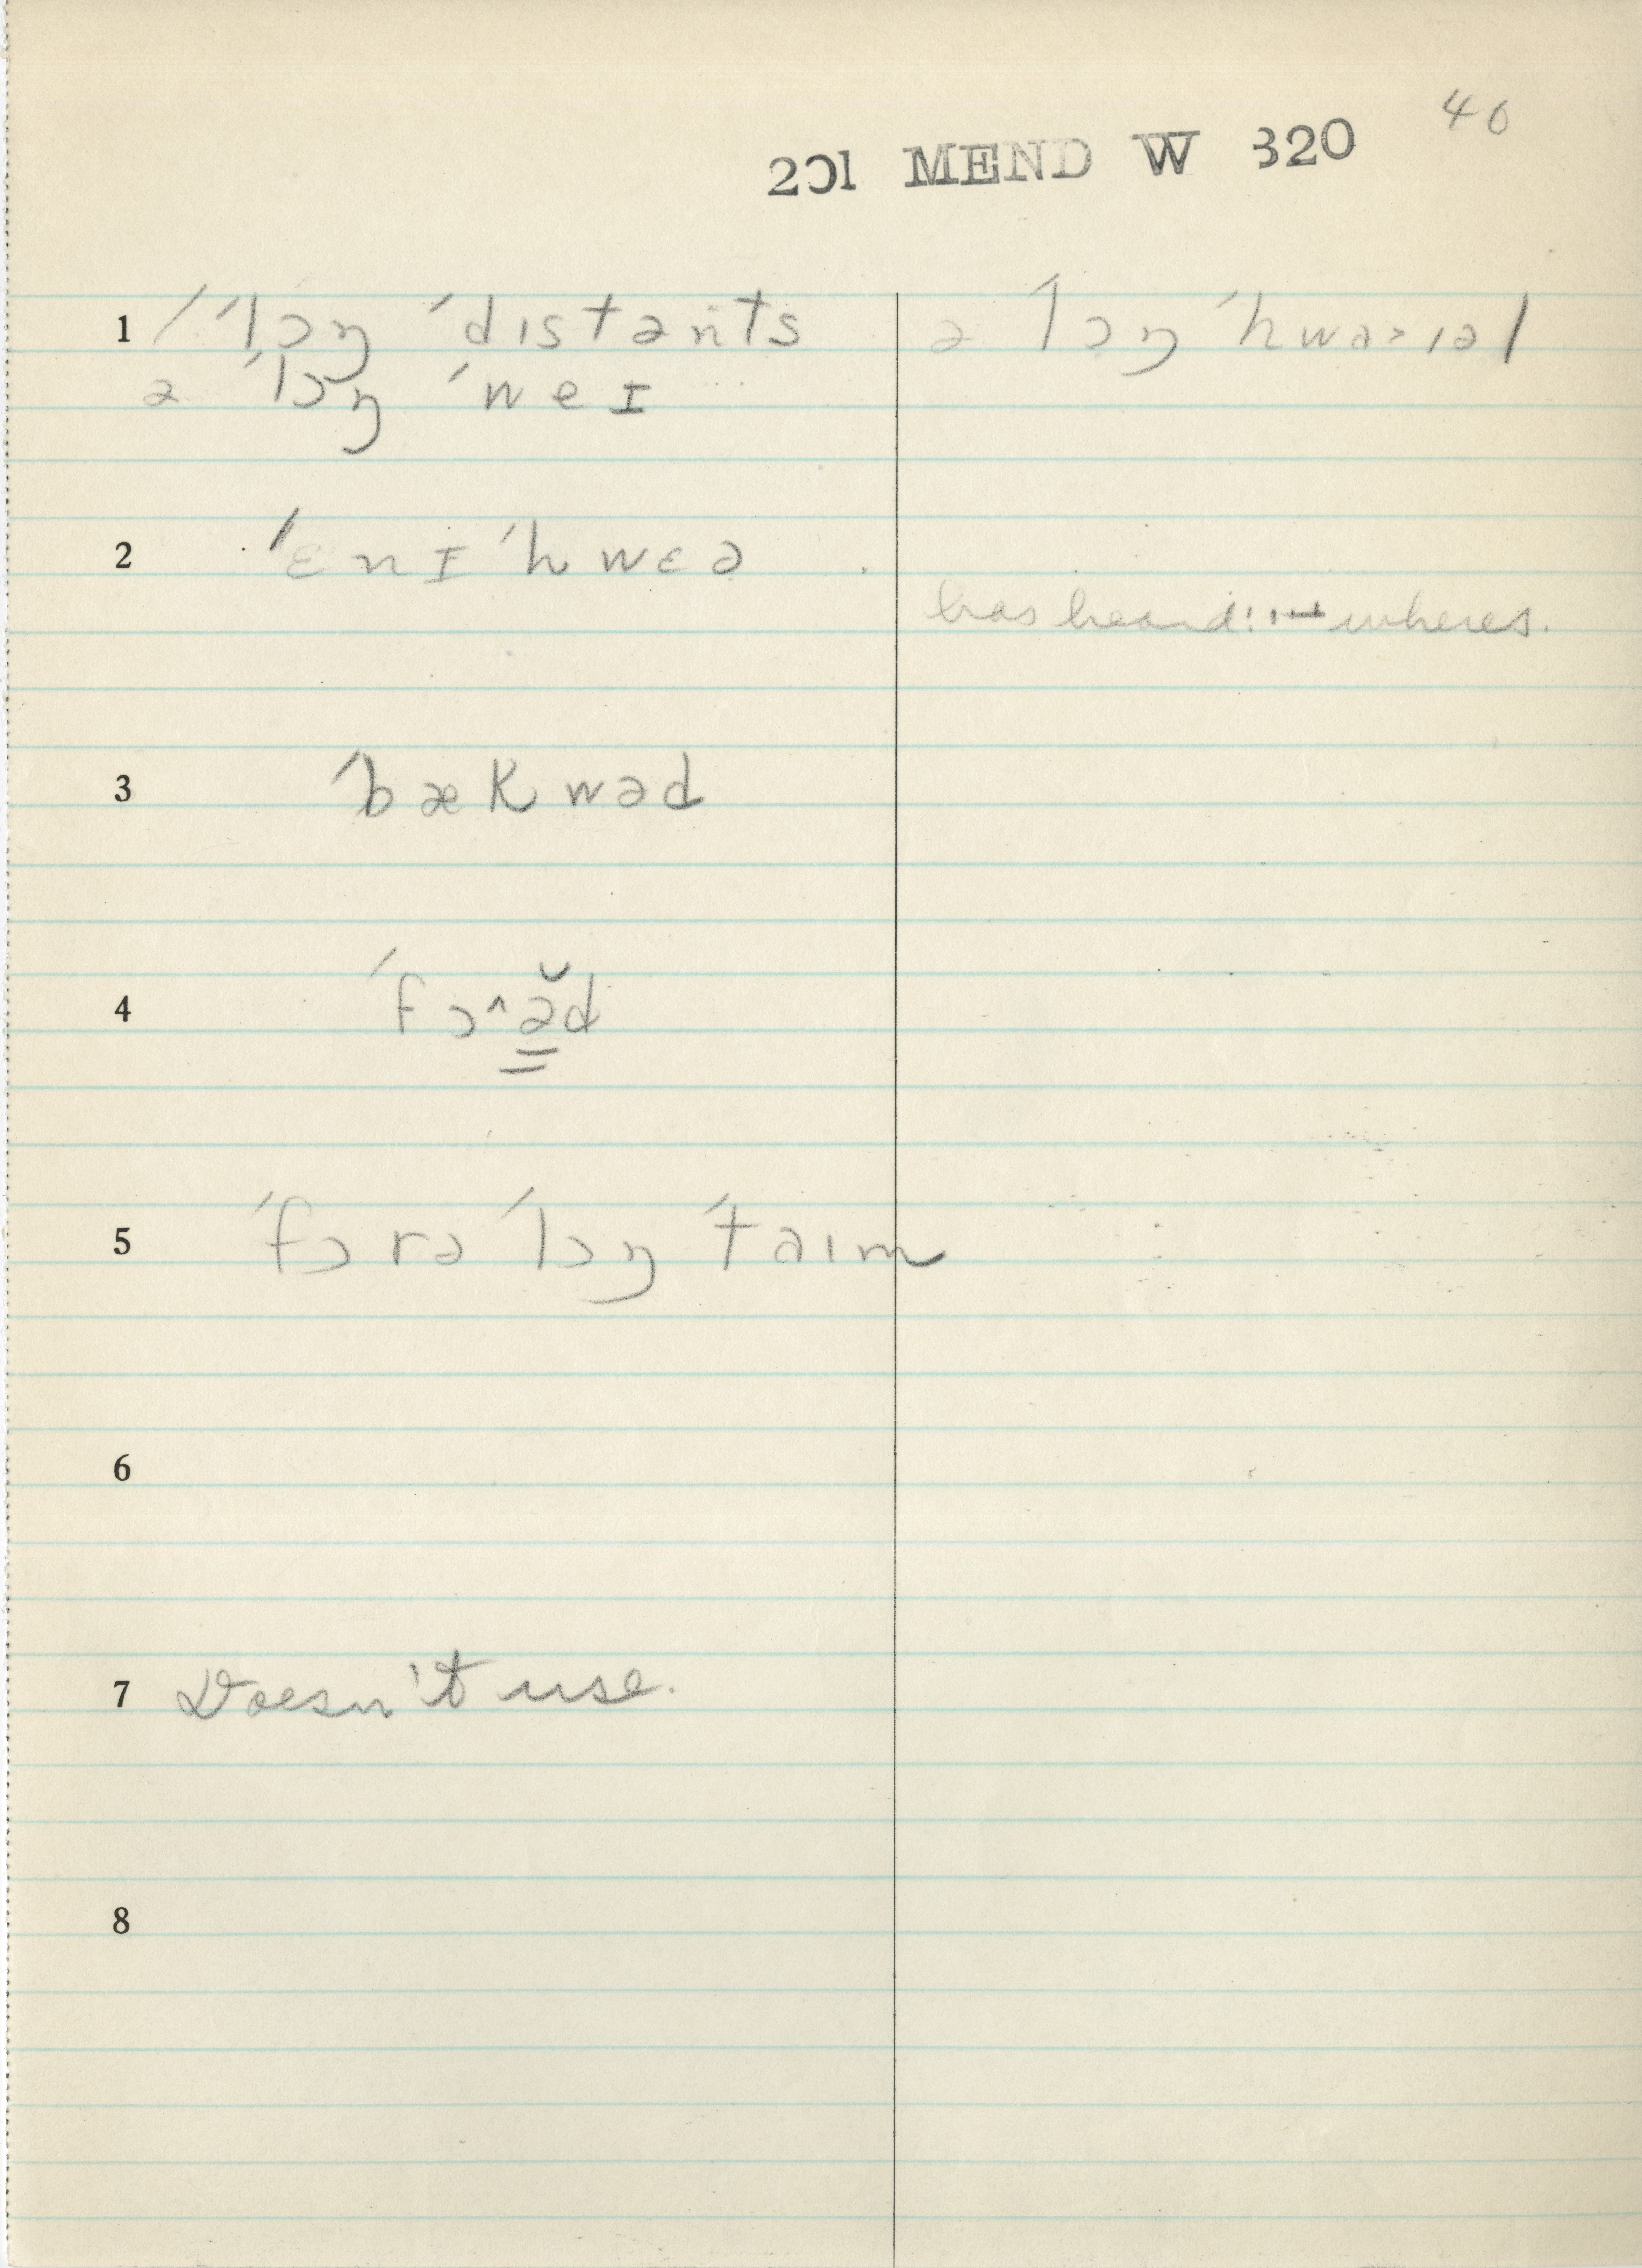 40
201 MEND W 320
1 / ˈlɔŋ ˈdɪstənts
ə ˈlɔŋ ˈhwaɪəl
ə ˈlɔŋ ˈweɪ
2 ˈɛnɪˈhwɛə
has heard: wheres.
3 ˈbækwəd
4 ˈfɔ^ə̆d
5 ˈfɔrə ˈlɔŋ ˈtaɪm
6
7 Doesn't use.
8